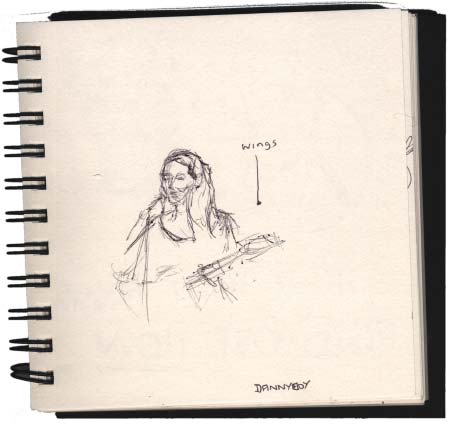 wings
DANNYBOY